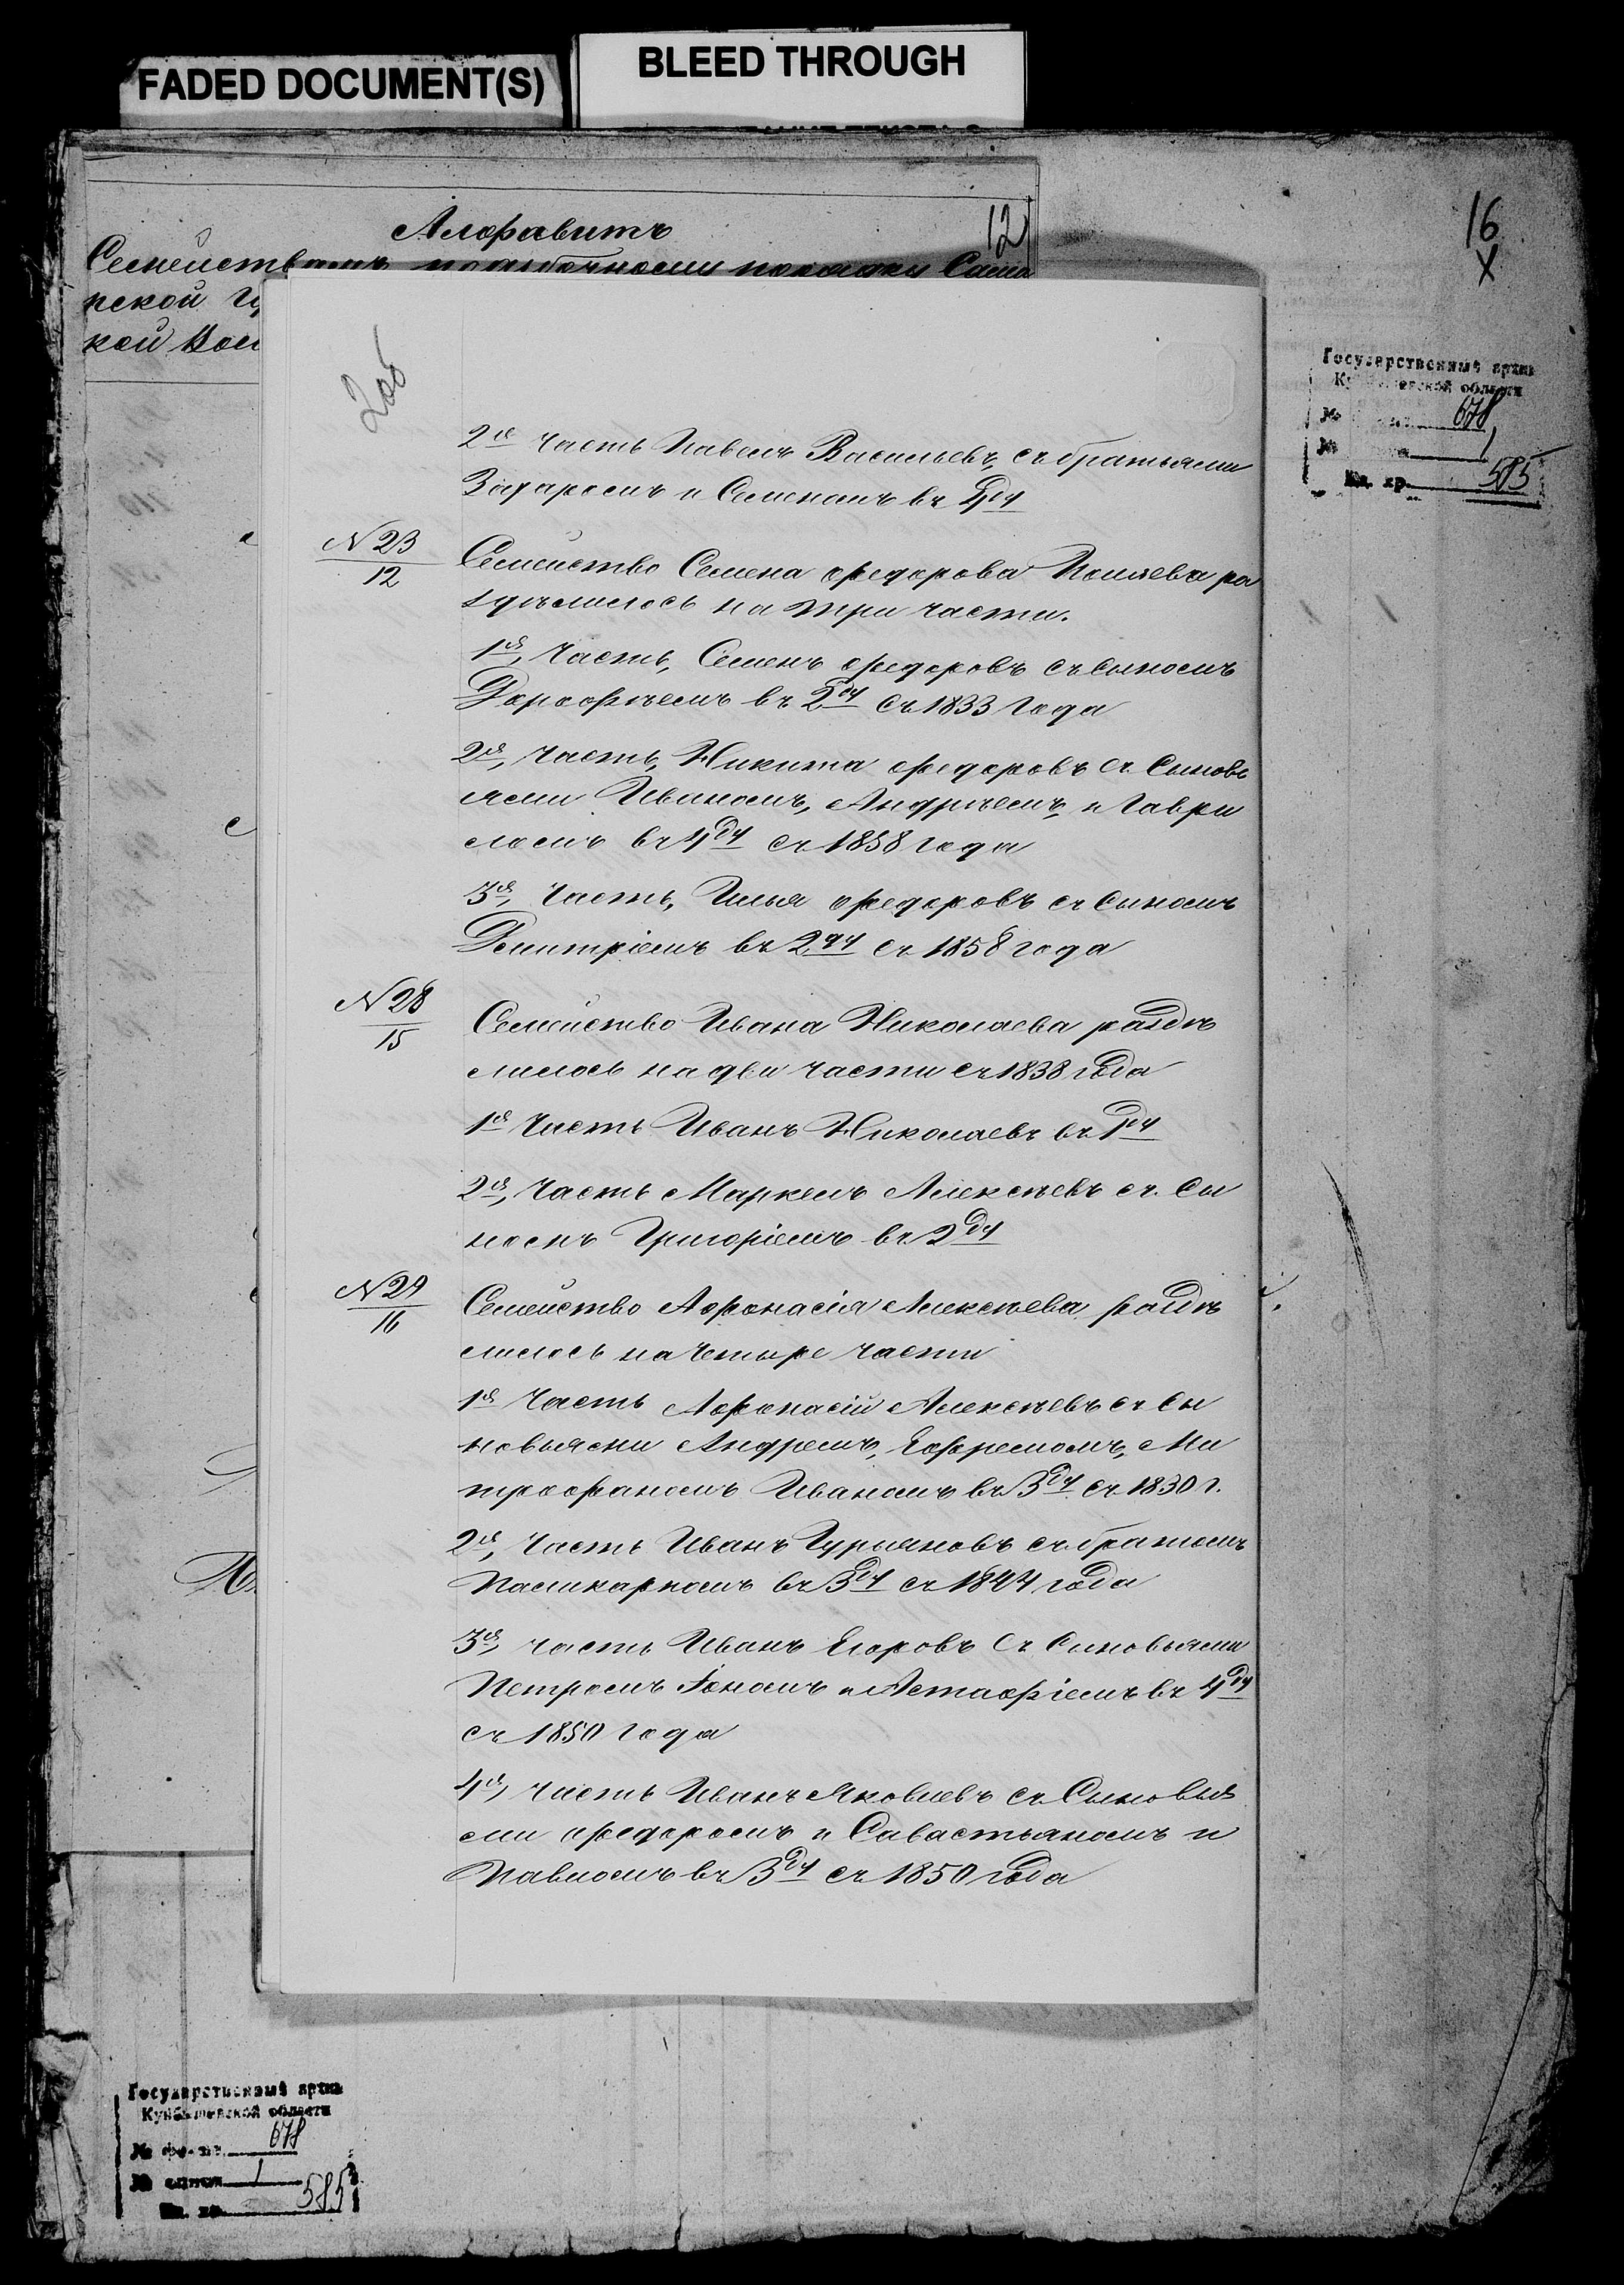 FADED DOCUMENT(S)
BLEED THROUGH
Алфавитъ
12
16
х
Государственный архив
Куйбышевской области
№ 678
№ 1
Ед. хр. 585
2я часть Павелъ Васильевъ, съ братьями
Захаромъ и Семеномъ въ 4 ду
N 23
12
Семейство Семена Федорова Поляева ра
здѣлилось на три части.
1я, Часть, Семенъ Федоровъ съ сыномъ
Дорофѣемъ въ 2 ду съ 1833 года
2я, Часть, Никита Федоровъ съ Сыновь
ями Иваномъ, Андрѣемъ, и Гаври
ломъ въ 4 ду съ 1858 года
3я, Часть, Илья Федоровъ съ Сыномъ
Дмитріемъ въ 2 ду съ 1858 года
N 28
15
Семейство Ивана Николаева раздѣ
лилось на две части съ 1838 года
1я Часть Иванъ Николаевъ въ 1 ду
2я, Часть Маркелъ Алексѣевъ съ Сы
номъ Григоріемъ въ 2 ду
N 29
16
Семейство Афонасія Алексѣева раздѣ
лилось на четыре части
1я Часть Афонасій Алексѣевъ съ Сы
новьями Андремъ, Ефремомъ, Ми
трофаномъ Иваномъ въ 3 ду съ 1830 г.
2я, Часть Иванъ Гурьяновъ съ братомъ
Паликарпомъ въ 3 ду съ 1844 года
3я, часть Иванъ Егоровъ съ Сыновьями
Петромъ Іономъ и Астафіемъ въ 4 ду
съ 1850 года
4я, часть Иванъ Яковлевъ съ Сыновья
ми Федоромъ и Савастьяномъ и
Павломъ въ 3 ду съ 1850 года
Государственный архив
Куйбышевской области
№ фонда 678
№ описи 1
Ед. хр. 585